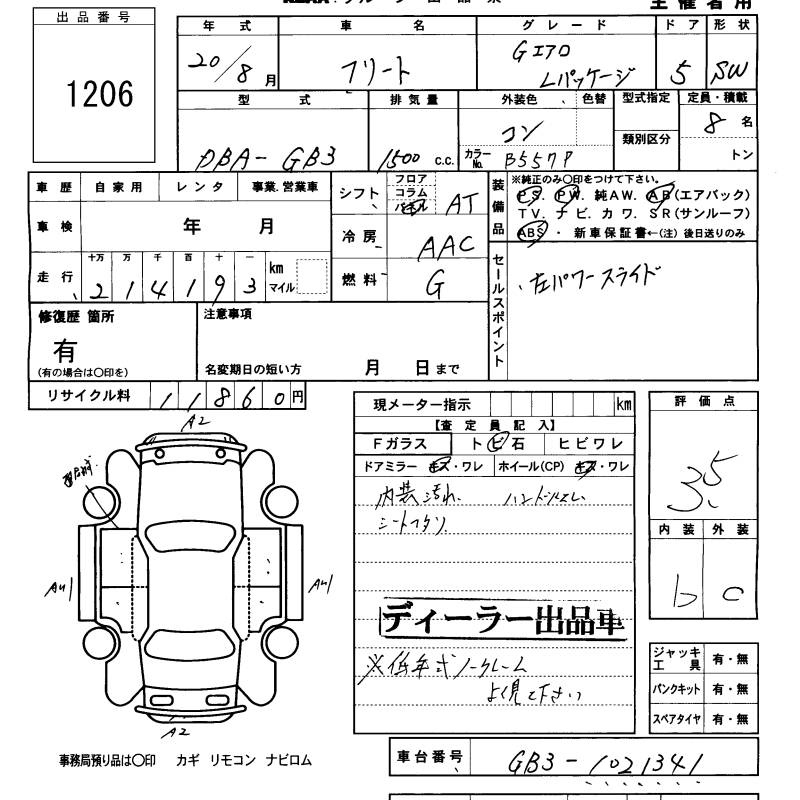 主催者用
出品番号
1206
年式 車名 グレード ドア 形状
20/8月 フリート Gエアロ Lパッケージ 5 SW
型式 排気量 外装色 色替 型式指定 定員・積載
DBA-GB3 1500 c.c. コン カラーNo. B557P 類別区分 8名
トン
車歴 自家用 レンタ 事業.営業車
車検 年 月
走行 十万 万 千 百 十 一 km マイル
2 1 4 1 9 3
シフト フロア コラム パネル AT
冷房 AAC
燃料 G
装備品 ※純正のみ〇印をつけて下さい。
PS. PW. 純AW. AB(エアバック)
TV. ナビ. カワ. SR(サンルーフ)
ABS ・ 新車保証書←(注) 後日送りのみ
セールスポイント
左パワースライド
修復歴 箇所
有
(有の場合は〇印を)
注意事項
名変期日の短い方 月 日まで
リサイクル料 11860円
現メーター指示 km
【査定員記入】
Fガラス トビ石 ヒビワレ
ドアミラー キズ・ワレ ホイール(CP) キズ・ワレ
内装汚れ. ハンドルスレ
シートフタソ
ディーラー出品車
※低年式ノークレーム
よく見て下さい
評価点
3.5
内装 外装
b C
ジャッキ 工具 有・無
パンクキット 有・無
スペアタイヤ 有・無
A2
AU1
AU1
A2
事務局預り品は〇印 カギ リモコン ナビロム
車台番号 GB3-1021341